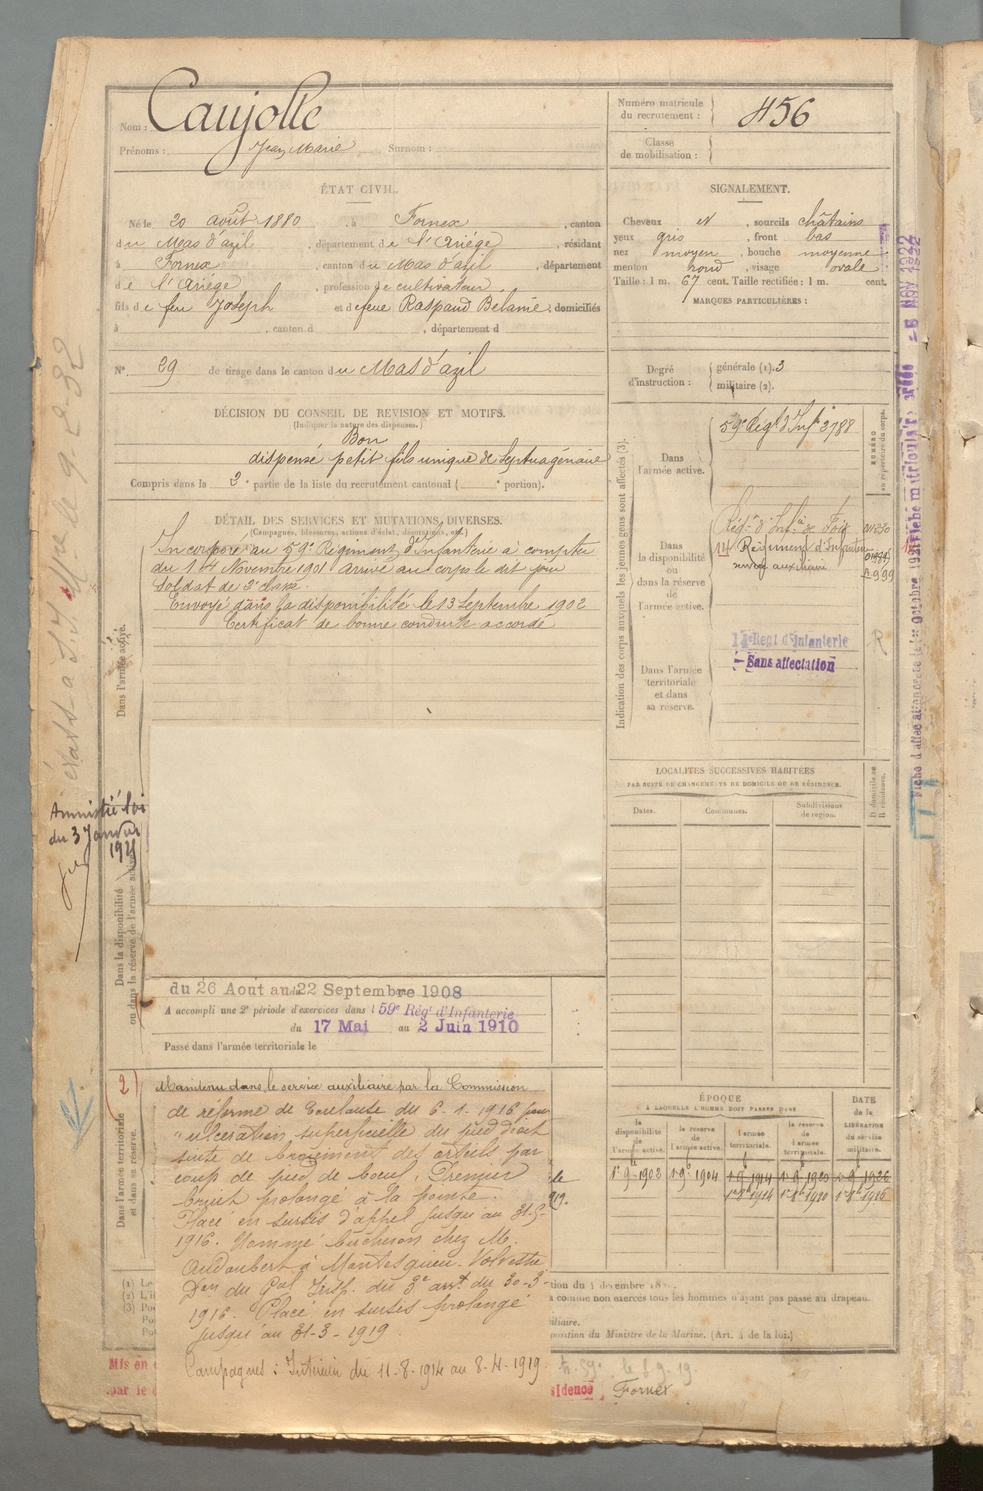 Nom : Caujolle
Prénoms : Jean Marie Surnom :
Numéro matricule du recrutement : 456
Classe de mobilisation :
ÉTAT CIVIL.
Né le 20 août 1880, à Fornex, canton
du Mas d'azil, département de l'Ariège, résidant
à Fornex, canton du Mas d'azil, département
de l'Ariège, profession de cultivateur
fils de feu Joseph et de feue Raspaud Bélanie, domiciliés
à , canton d , département d
N° 29 de tirage dans le canton du Mas d'azil
SIGNALEMENT.
Cheveux N, sourcils châtains
yeux gris, front bas
nez moyen, bouche moyenne
menton rond, visage ovale
Taille : 1 m. 67 cent. Taille rectifiée : 1 m. cent.
MARQUES PARTICULIÈRES :
Degré d'instruction : générale (1). 3
militaire (2).
DÉCISION DU CONSEIL DE REVISION ET MOTIFS.
(Indiquer la nature des dispenses.)
Bon
dispensé petit fils unique de septuagénaire
Compris dans la 2e partie de la liste du recrutement cantonal ( e portion).
DÉTAIL DES SERVICES ET MUTATIONS DIVERSES.
(Campagnes, blessures, actions d'éclat, décorations, etc.)
Incorporé au 59e Régiment d'Infanterie à compter
du 14 Novembre 1901 arrivé au corps le dit jour
Soldat de 2e classe.
Envoyé dans la disponibilité le 13 Septembre 1902
Certificat de bonne conduite accordé
Dans l'armée active.
Amnistié loi
du 3 Janvier
Dans la disponibilité
ou dans la réserve de l'armée active
du 26 Aout au 22 Septembre 1908
A accompli une 2e période d'exercices dans l 59e Régt d'Infanterie
du 17 Mai au 2 Juin 1910
Passé dans l'armée territoriale le
Dans l'armée territoriale
et dans sa réserve.
Maintenu dans le service auxiliaire par la Commission
de réforme de Toulouse du 6-1-1916 pour
"ulcération superficielle du pied droit
suite de broiement des orteils par
coup de pied de boeuf. Premier
bruit prolongé à la pointe.
Placé en sursis d'appel jusqu'au 31-5-
1916. Nommé bûcheron chez M.
Audoubert à Montesquieu-Volvestre
Don du Gal Insp. du 3e arrt du 30-3-
1916. Placé en sursis prolongé
jusqu'au 31-3-1919.
Campagnes : Intérieur du 11-8-1914 au 8-4-1919
Indication des corps auxquels les jeunes gens sont affectés (3).
NUMÉRO
au répertoire du corps.
Dans l'armée active.
59e Régt d'Infie 2788
Dans la disponibilité ou dans la réserve de l'armée active.
Régt d'Infie de Foix
14 Régiment d'Infanterie
service auxiliaire
Dans l'armée territoriale et dans sa réserve.
Régt d'Infanterie
Sans affectation
R
LOCALITÉS SUCCESSIVES HABITÉES
PAR SUITE DE CHANGEMENTS DE DOMICILE OU DE RÉSIDENCE.
Dates. Communes. Subdivisions de région. D domicile ou R résidence.
ÉPOQUE
A LAQUELLE L'HOMME DOIT PASSER DANS
la disponibilité de l'armée active. la réserve de l'armée active. l'armée territoriale. la réserve de l'armée territoriale.
DATE de la LIBÉRATION du service militaire.
1-9-1903 1-9-1904 1-9-1914 1-9-1920 1-9-1926
tion du 1 décembre 18
à comme non exercés tous les hommes n'ayant pas passé au drapeau.
iliaire.
position du Ministre de la Marine. (Art. 4 de la loi.)
Mis en
par le
sidence Fornex
5 NOV 1922